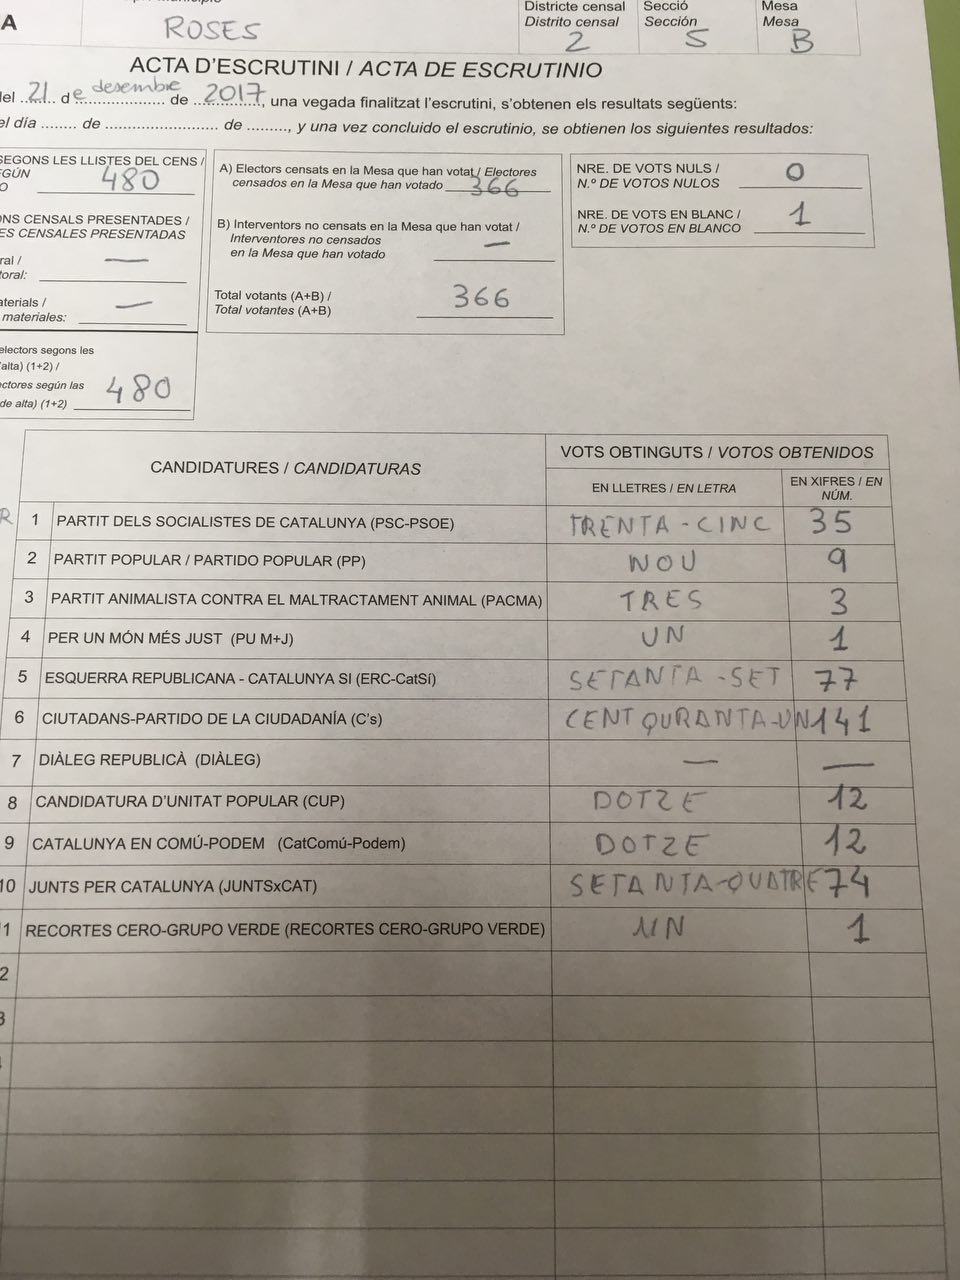 A
ROSES
Districte censal
Distrito censal
2
Secció
Sección
5
Mesa
Mesa
B
ACTA D'ESCRUTINI / ACTA DE ESCRUTINIO
del 21 de desembre de 2017, una vegada finalitzat l'escrutini, s'obtenen els resultats següents:
el día ........ de ............................ de ........., y una vez concluido el escrutinio, se obtienen los siguientes resultados:
SEGONS LES LLISTES DEL CENS /
480
ONS CENSALS PRESENTADES /
ES CENSALES PRESENTADAS
—
—
materiales:
electors segons les
alta) (1+2) /
ectores según las
de alta) (1+2)
480
A) Electors censats en la Mesa que han votat / Electores
censados en la Mesa que han votado 366
B) Interventors no censats en la Mesa que han votat /
Interventores no censados
en la Mesa que han votado
—
Total votants (A+B) /
Total votantes (A+B)
366
NRE. DE VOTS NULS /
N.º DE VOTOS NULOS
0
NRE. DE VOTS EN BLANC /
N.º DE VOTOS EN BLANCO
1
CANDIDATURES / CANDIDATURAS
VOTS OBTINGUTS / VOTOS OBTENIDOS
EN LLETRES / EN LETRA
EN XIFRES / EN
NÚM.
R 1 PARTIT DELS SOCIALISTES DE CATALUNYA (PSC-PSOE) TRENTA-CINC 35
2 PARTIT POPULAR / PARTIDO POPULAR (PP) NOU 9
3 PARTIT ANIMALISTA CONTRA EL MALTRACTAMENT ANIMAL (PACMA) TRES 3
4 PER UN MÓN MÉS JUST (PU M+J) UN 1
5 ESQUERRA REPUBLICANA - CATALUNYA SI (ERC-CatSí) SETANTA-SET 77
6 CIUTADANS-PARTIDO DE LA CIUDADANÍA (C's) CENT QURANTA-UN 141
7 DIÀLEG REPUBLICÀ (DIÀLEG) — —
8 CANDIDATURA D'UNITAT POPULAR (CUP) DOTZE 12
9 CATALUNYA EN COMÚ-PODEM (CatComú-Podem) DOTZE 12
10 JUNTS PER CATALUNYA (JUNTSxCAT) SETANTA-QUATRE 74
1 RECORTES CERO-GRUPO VERDE (RECORTES CERO-GRUPO VERDE) UN 1
2
3